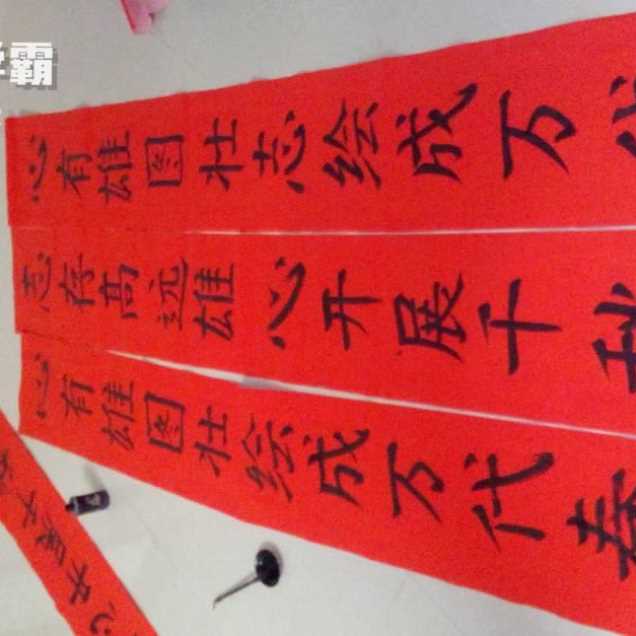 学霸
心有雄图壮志绘成万代
志存高远雄心开展千秋
心有雄图壮绘成万代春
心开展千秋